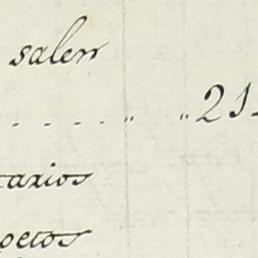 salen
. . . . . " " 21
tarios
petos